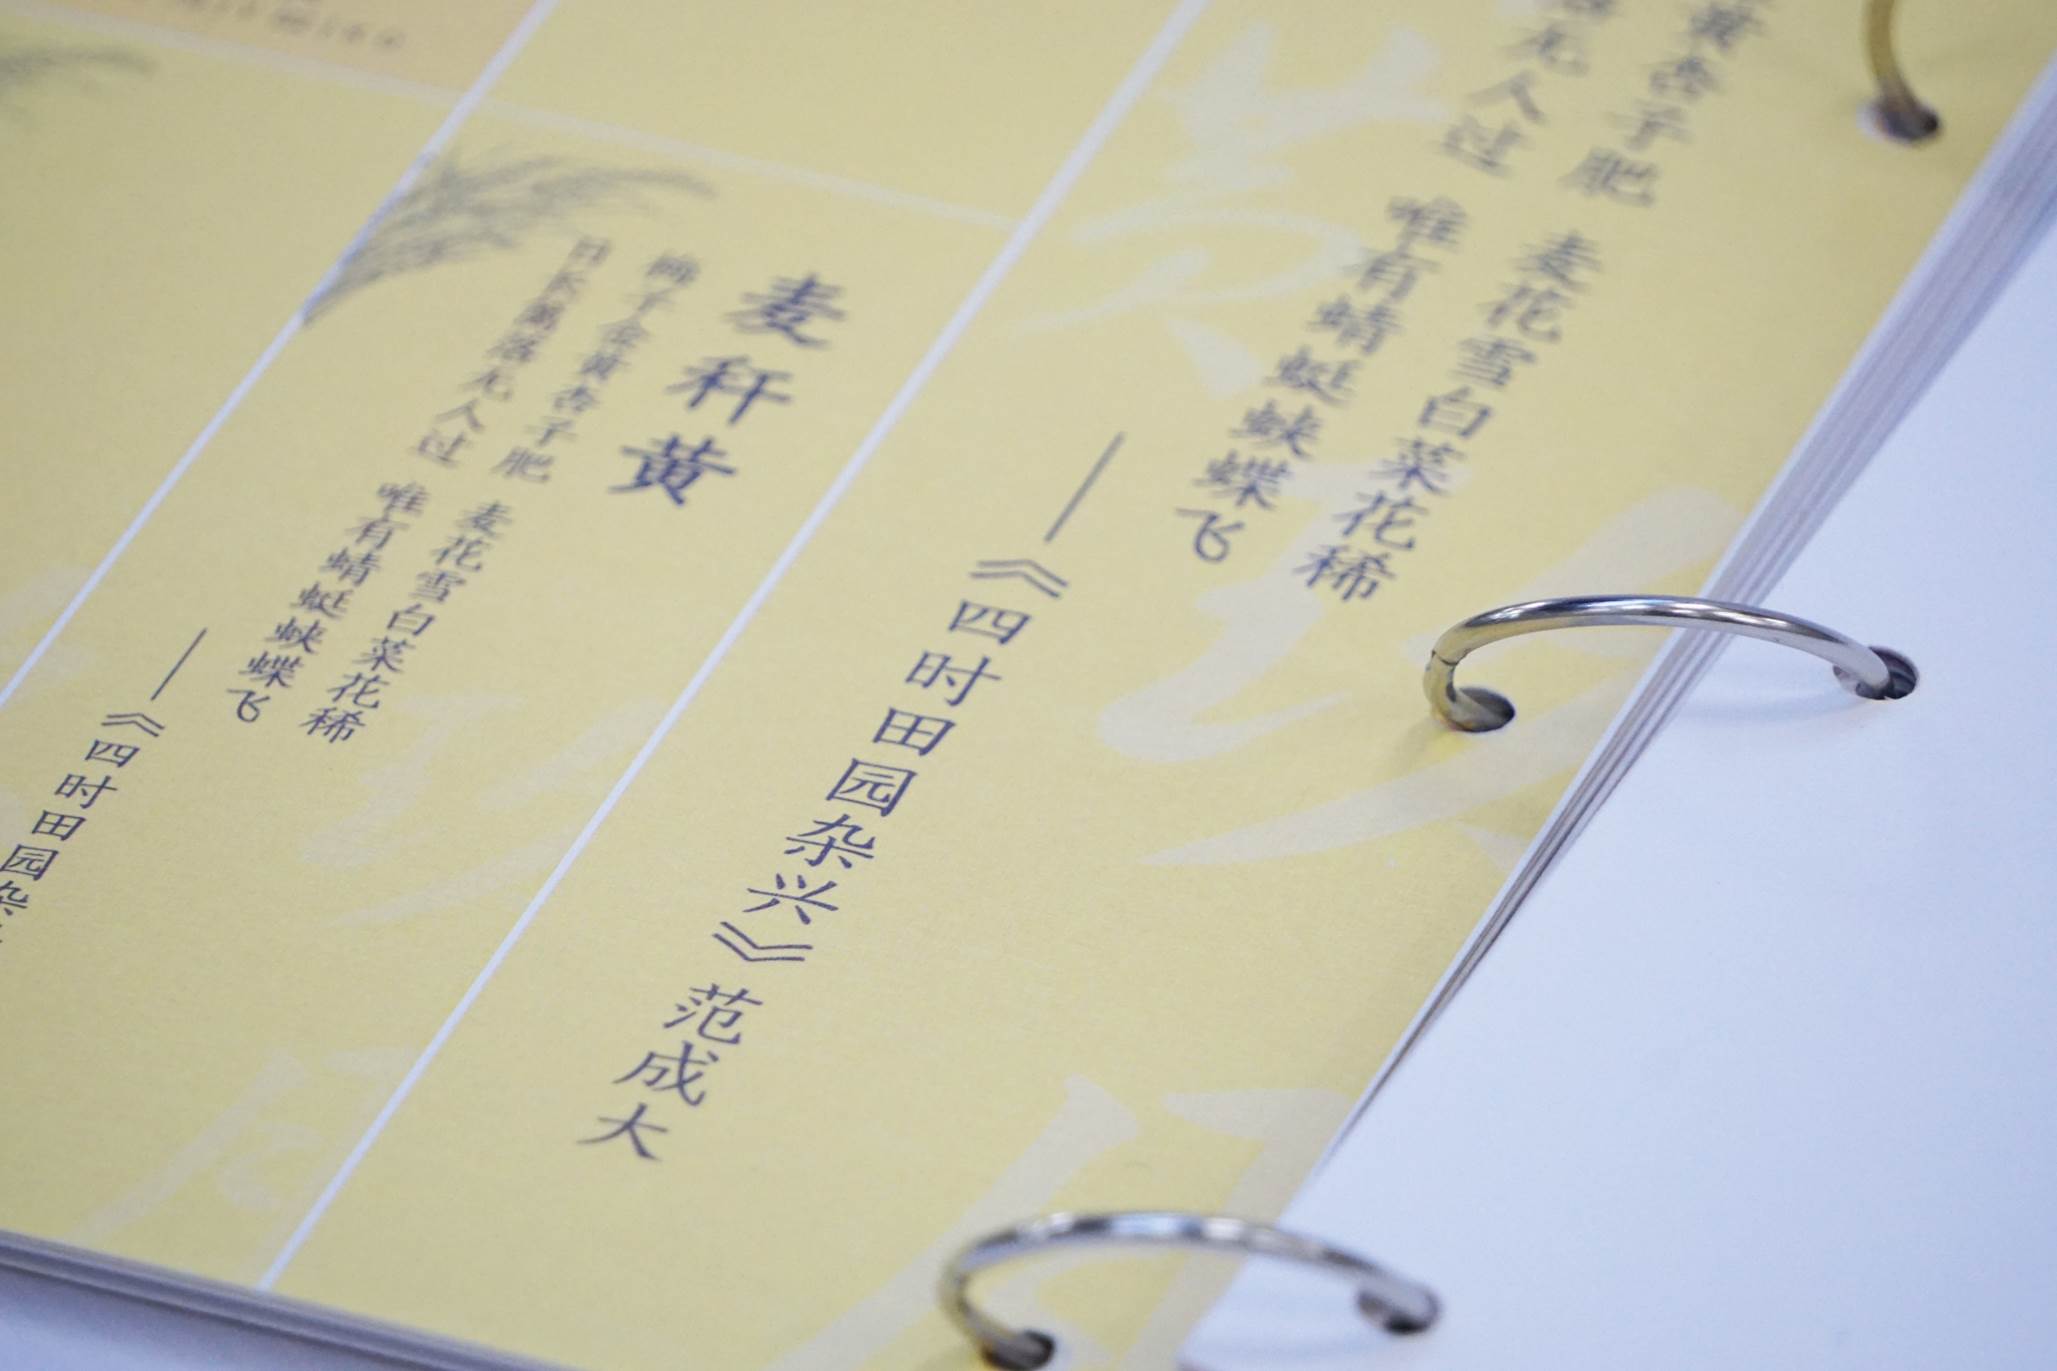 黄杏子肥 麦花雪白菜花稀
落无人过 唯有蜻蜓蛱蝶飞
——《四时田园杂兴》范成大
麦秆黄
梅子金黄杏子肥 麦花雪白菜花稀
日长篱落无人过 唯有蜻蜓蛱蝶飞
——《四时田园杂